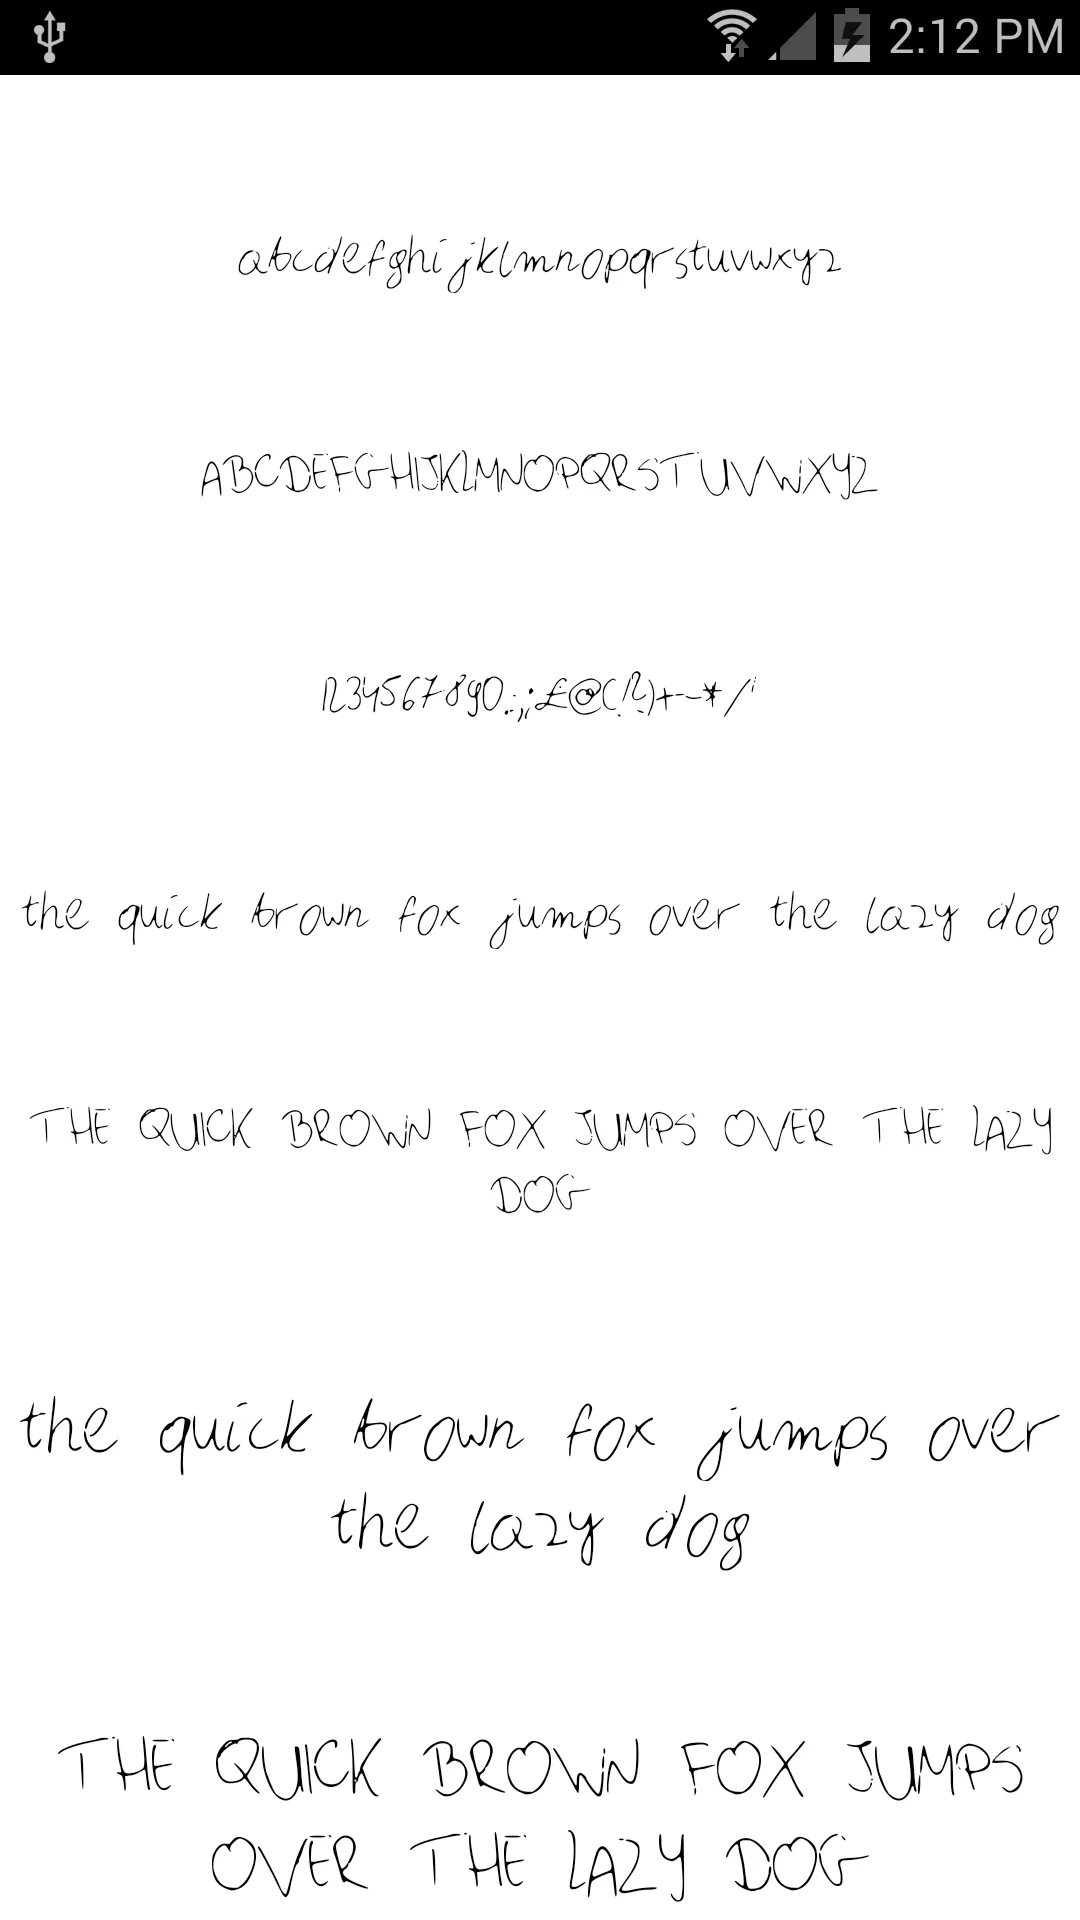 2:12 PM
abcdefghijklmnopqrstuvwxyz
ABCDEFGHIJKLMNOPQRSTUVWXYZ
1234567890.:,;£@(!?)+-–*/'
the quick brown fox jumps over the lazy dog
THE QUICK BROWN FOX JUMPS OVER THE LAZY
DOG
the quick brown fox jumps over
the lazy dog
THE QUICK BROWN FOX JUMPS
OVER THE LAZY DOG